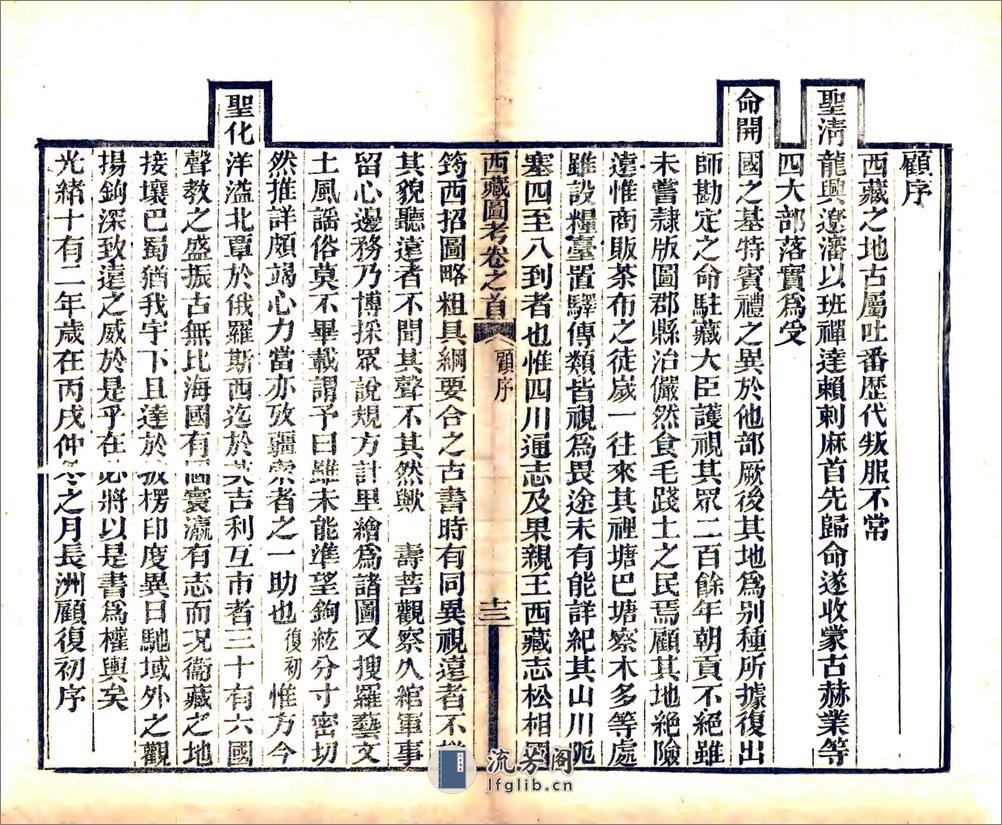 顧序
西藏之地古屬吐番歷代叛服不常
聖清龍興遼瀋以班禪達賴刺麻首先歸命遂收蒙古赫業等
四大部落實爲受
命開國之基特賓禮之異於他部厥後其地爲別種所據復出
師勘定之命駐藏大臣護視其眾二百餘年朝貢不絕雖
未嘗隸版圖郡縣治儼然食毛踐土之民焉顧其地絕險
遠惟商販茶布之徒歲一往來其裡塘巴塘察木多等處
雖設糧臺置驛傳類皆視爲畏途未有能詳紀其山川阨
塞四至八到者也惟四川通志及果親王西藏志松相國
西藏圖考卷之首 顧序 十三
筠西招圖略粗具綱要合之古書時有同異視遠者不
其貌聽遠者不聞其聲不其然歟 壽菩觀察久綰軍事
留心邊務乃博採眾說規方計里繪爲諸圖又搜羅藝文
土風謡俗莫不畢載謂予曰雖未能準望鉤絃分寸密切
然推詳頗竭心力當亦攷疆索者之一助也復初惟方今
聖化洋溢北覃於俄羅斯西迄於英吉利互市者三十有六國
聲教之盛振古無比海國有圖寰瀛有志而况衞藏之地
接壤巴蜀猶我宇下且達於披楞印度異日馳域外之觀
揚鉤深致遠之威於是乎在必將以是書爲權輿矣
光緒十有二年歲在丙戌仲冬之月長洲顧復初序
流芳阁
lfglib.cn